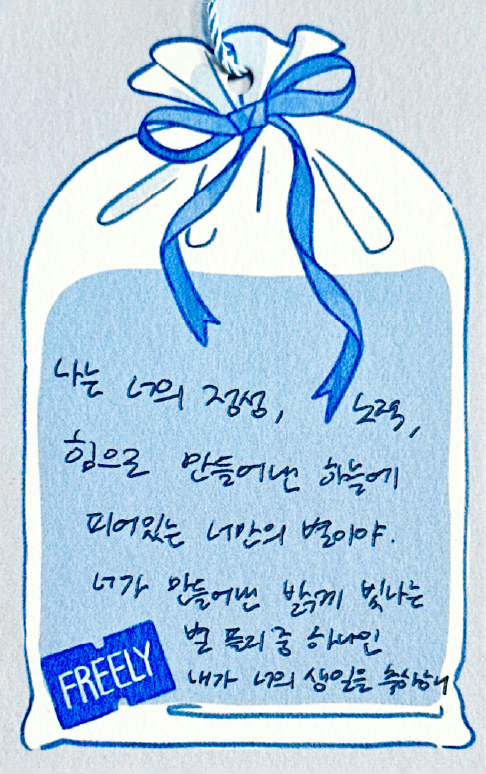 나는 너의 정성, 노력,
힘으로 만들어낸 하늘에
피어있는 너만의 별이야.
너가 만들어낸 밝게 빛나는
별 플리 중 하나인
내가 너의 생일을 축하해
FREELY